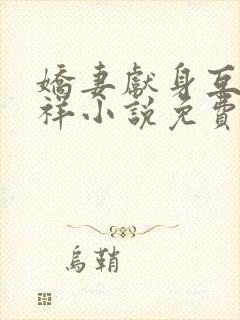 嬌妻獻身互
祥小說免費
烏鞘